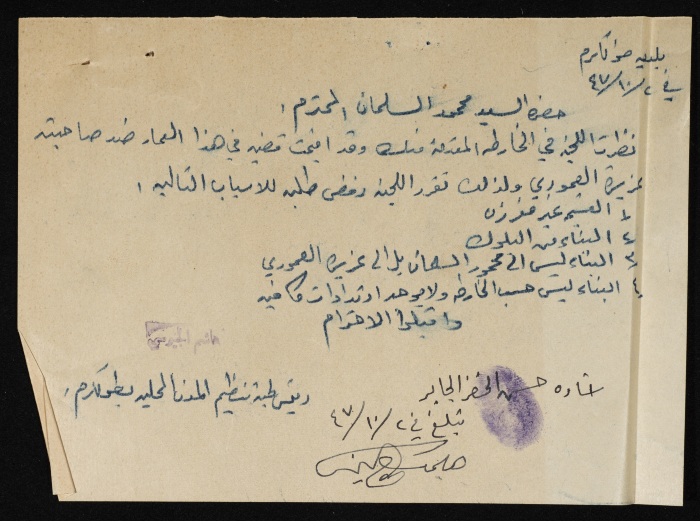 بلدية طولكرم
في ٢/١٠/٤٧
حضرة السيد محمد السلمان المحترم ،
نظرت اللجنة في الخارطه المقدمة منك وقد اقيمت قضيه في هذا العمار ضد صاحبته
عزيزة العموري ولذلك تقرر اللجنة رفض طلبه للاسباب التالية :
١ القسم غير مفرزه
٢ البناء من البلوك
٣ البناء ليس الى محمود السلمان بل الى عزيزه العموري
٤ البناء ليس حسب الخارطه ولا يوجد ارتدادات كافيه
واقبلوا الاحترام
هاشم الجيوسي
رئيس لجنة تنظيم المدن المحلية بطولكرم ،
اشاره حسن الخضر الجابر
تبلغ في ٢/١٠/٤٧